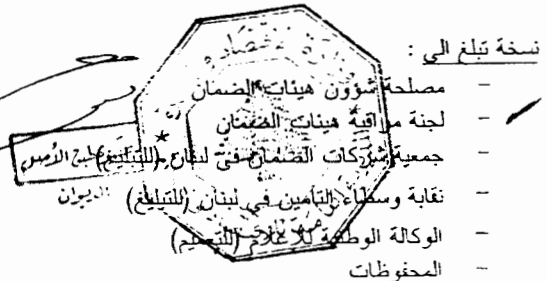 نسخة تبلغ الى :
- مصلحة شؤون هيئات الضمان
- لجنة مراقبة هيئات الضمان
- جمعية شركات الضمان في لبنان (للتبليغ)
- نقابة وسطاء التأمين في لبنان (للتبليغ) الديوان
- الوكالة الوطنية للاعلام (للتعميم)
- المحفوظات